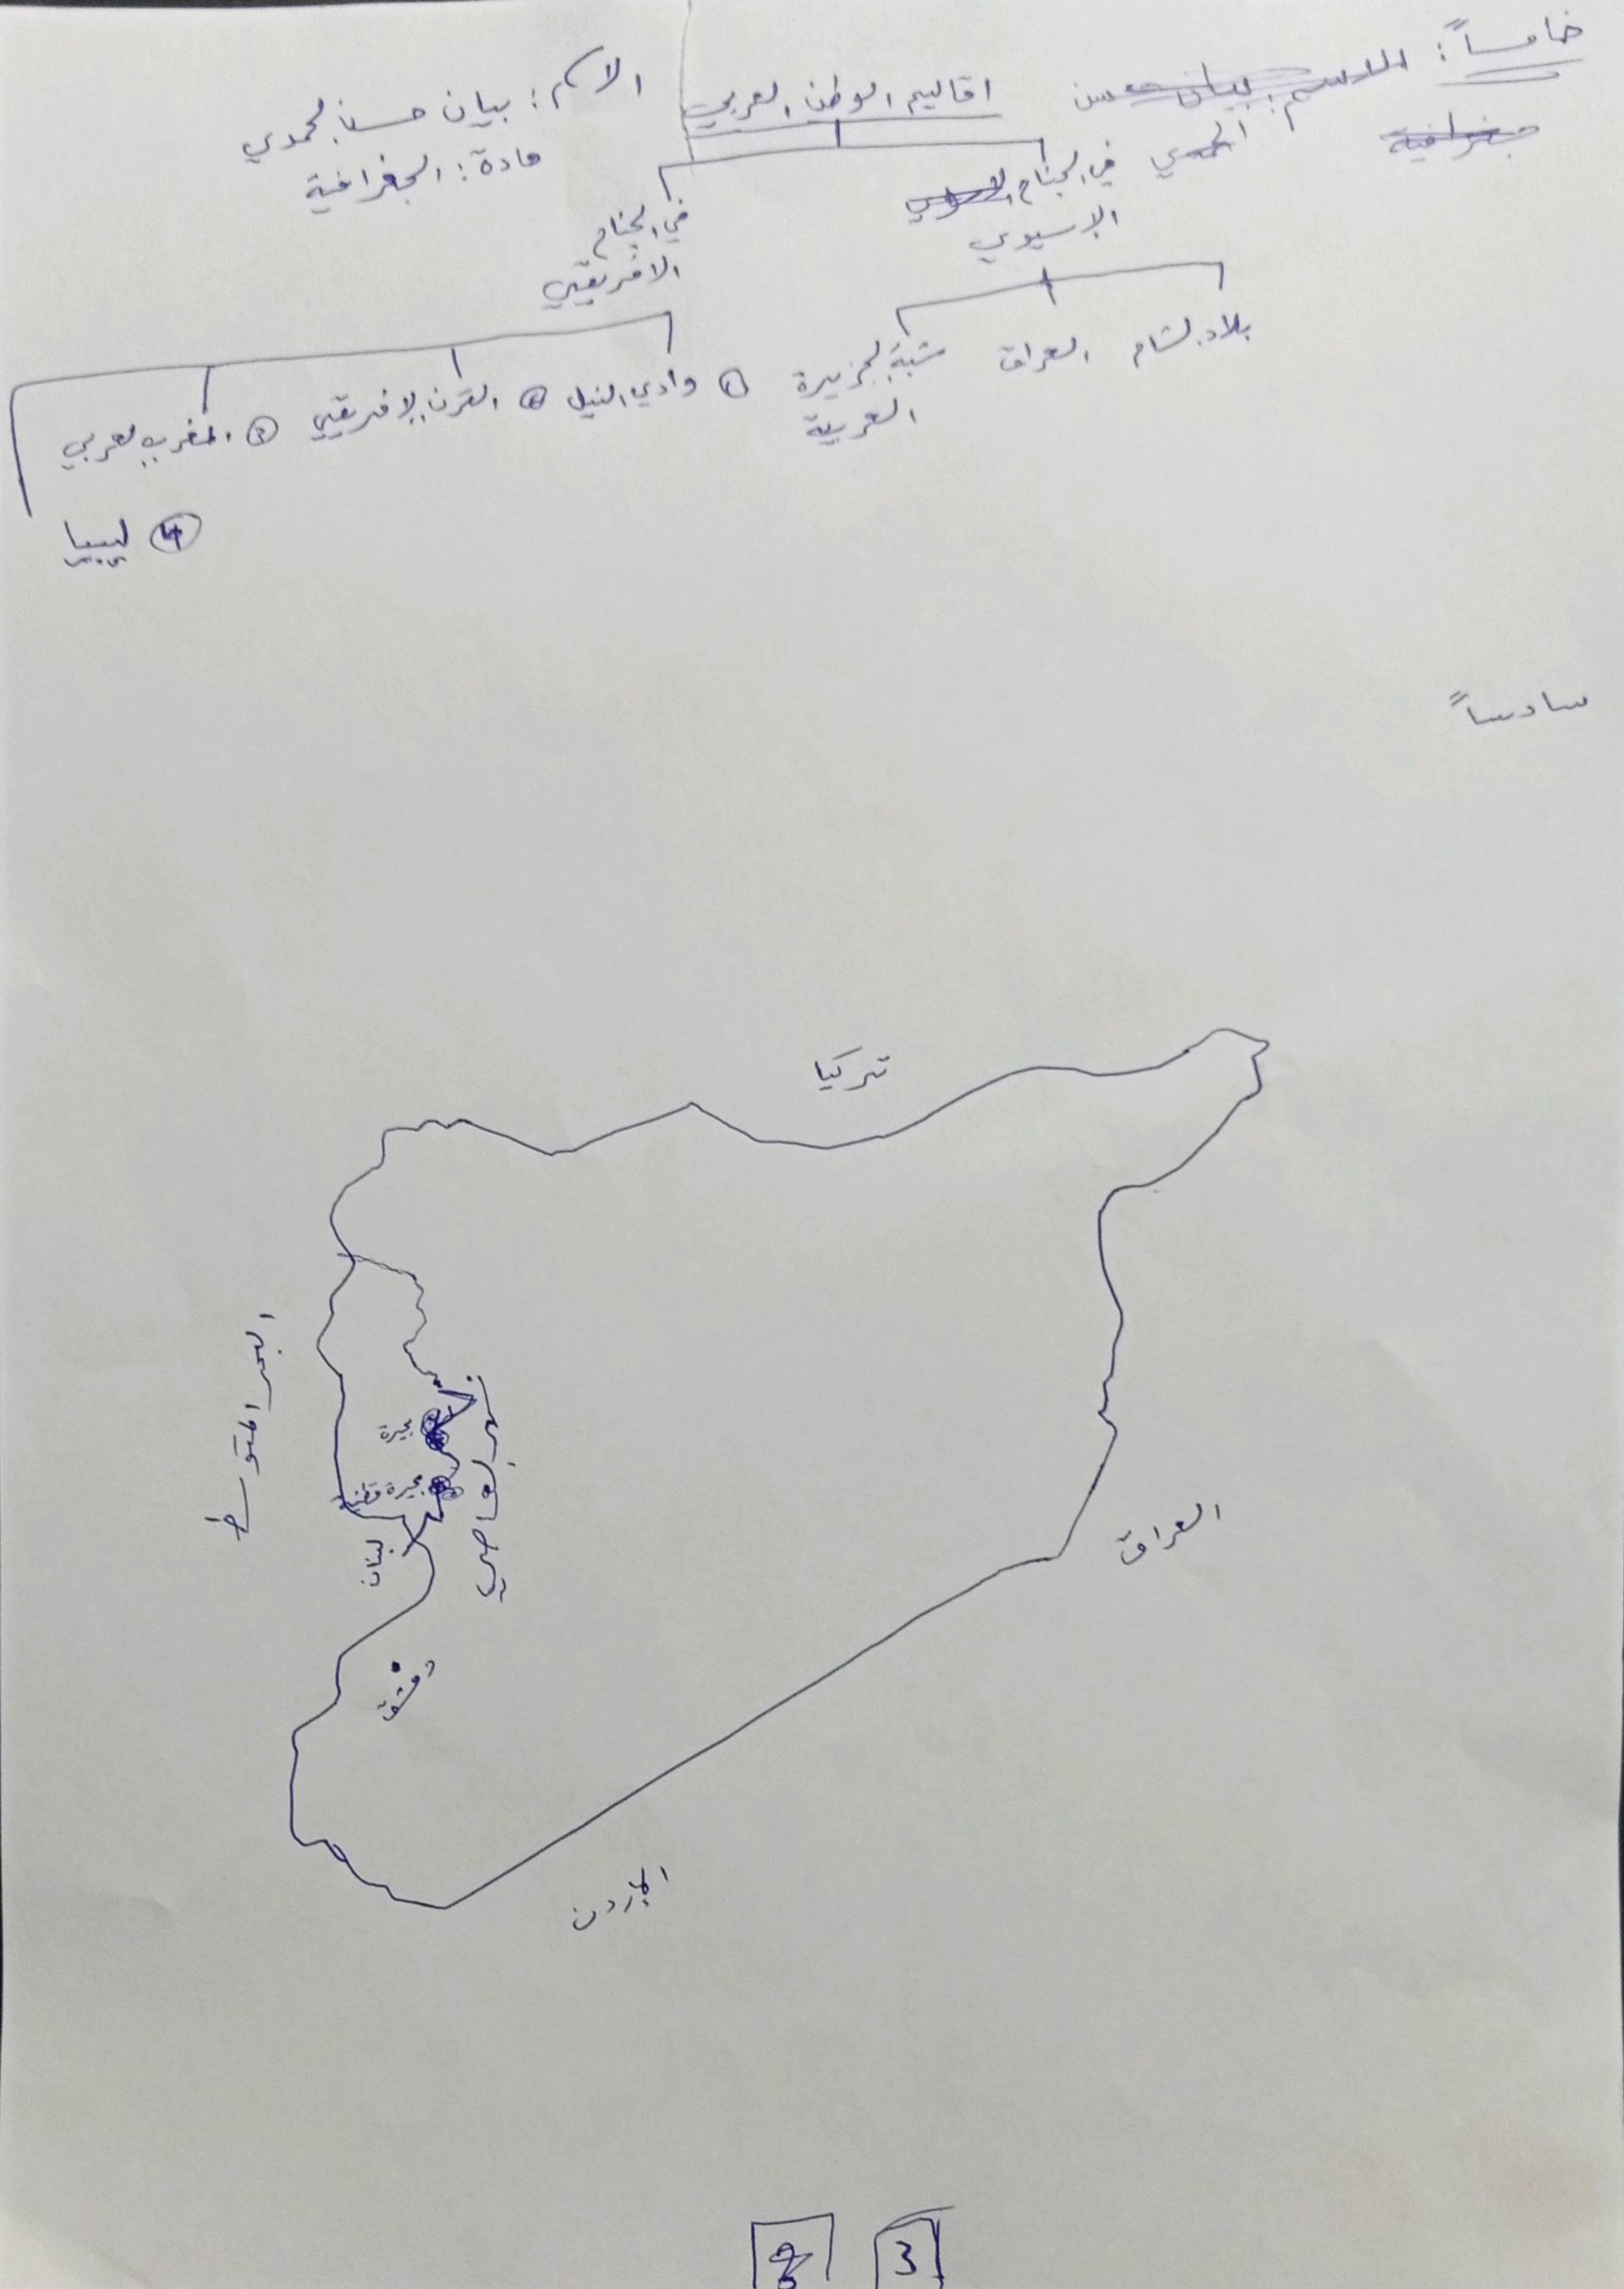 خامساً:
اقاليم الوطن العربي
الاسم: بيان حسن المحمدي
مادة: الجغرافية
في الجناح
الاسيوي
في الجناح
الافريقي
بلاد الشام
العراق
شبه الجزيرة
العربية
① وادي النيل
② القرن الافريقي
③ المغرب العربي
④ ليبيا
سادساً
تركيا
البحر المتوسط
بحيرة
بحيرة قطينة
نهر العاصي
لبنان
العراق
دمشق
الاردن
3